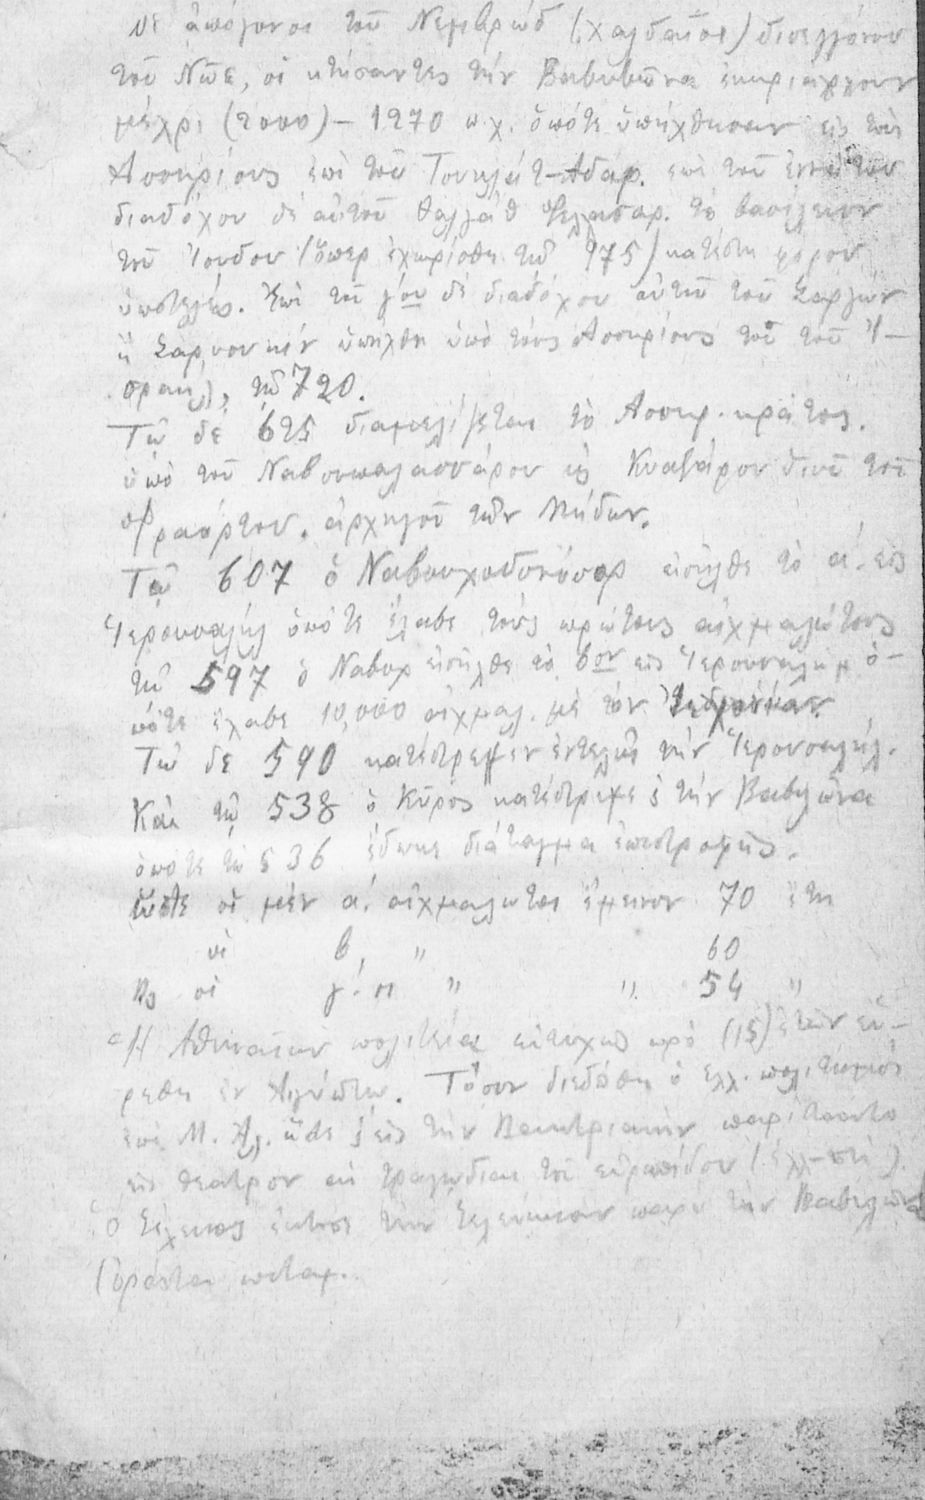 Οἱ ἀπόγονοι τοῦ Νεμβρώδ (Χαλδαῖοι) δισεγγόνου
τοῦ Νῶε, οἱ κτήσαντες τὴν Βαβυλῶνα ἐκυριάρχουν
μέχρι (2000) – 1270 π.χ. ὁπότε ὑπήχθησαν εἰς τοὺς
Ἀσσυρίους ἐπὶ τοῦ Τουκλάτ-Αδάρ. ἐπὶ τοῦ ἐννάτου
διαδόχου δὲ αὐτοῦ Θαλγάθ Φελασάρ. τὸ βασίλειον
τοῦ Ἰούδου (ὅπερ ἐχωρίσθη τῷ 975) κατέστη φόρου
ὑποτελές. Ἐπὶ τοῦ γ΄ου δὲ διαδόχου αὐτοῦ τοῦ Σαργών
ἢ Σαρνουκίν ὑπήχθη ὑπὸ τοὺς Ἀσσυρίους τὸ τοῦ Ἰ-
σραήλ, τῷ 720.
Τῷ δὲ 625 διαμελίζεται τὸ Ἀσσυρ. κράτος.
ὑπὸ τοῦ Ναβουπαλασσάρου κ Κυαξάρου υἱοῦ τοῦ
Φραόρτου. ἀρχηγοῦ τῶν Μήδων.
Τῷ 607 ὁ Ναβουχοδονόσορ εἰσῆλθε τὸ α΄. εἰς
Ἱερουσαλήμ ὁπότε ἔλαβε τοὺς πρώτους αἰχμαλώτους
τῷ 597 ὁ Ναβουχ εἰσῆλθε τὸ βον εἰς Ἱερουσαλήμ ὁ-
πότε ἔλαβε 10,000 αἰχμαλ. μὲ τὸν
Τῷ δὲ 590 κατέστρεψεν ἐντελῶς τὴν Ἱερουσαλήμ.
Καὶ τῷ 538 ὁ Κῦρος κατέστρεψε τὴν Βαβυλῶνα
ὁπότε τῷ 536 ἔδωκε διάταγμα ἐπιστροφῆς.
ὥστε οἱ μὲν α΄. αἰχμάλωτοι ἔμεινον 70 ἔτη
οἱ β, " 60
κ οἱ γ΄. " " 54 "
Ἡ Ἀθηναίων πολιτεία εὐτυχῶς πρὸ (15) ἐτῶν εὑ-
ρέθη ἐν Αἰγύπτῳ. Τόσον διεδόθη ὁ ἑλλ. πολιτισμός
ἐπὶ Μ. Ἀλ. ὥστε εἰς τὴν Βακτριανήν παρίσταντο
εἰς θέατρον αἱ τραγωδίαι τοῦ εὐριπίδου (ἑλλ-στί).
Ὁ Σέλευκος ἔκτισε τὴν Σελεύκειαν παρὰ τὴν Βαβυλῶνα
ποταμ.